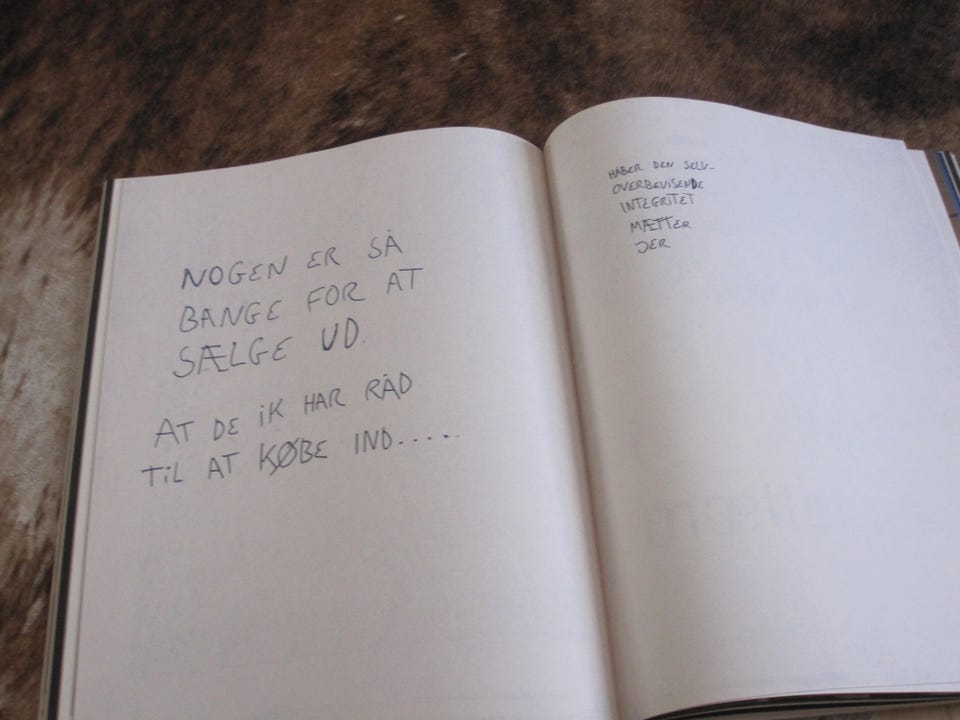 NOGEN ER SÅ
BANGE FOR AT
SÆLGE UD.
AT DE iK HAR RÅD
TiL AT KØBE IND.....
HÅBER DEN SELV-
OVERBEVISENDE
INTEGRITET
MÆTTER
JER